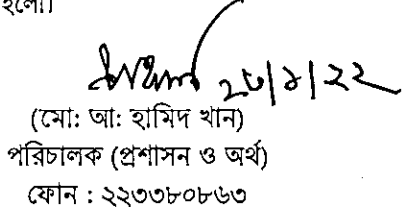 হলো।
২৩/১/২২
(মো: আ: হামিদ খান)
পরিচালক (প্রশাসন ও অর্থ)
ফোন : ২২৩৩৮০৮৬৩